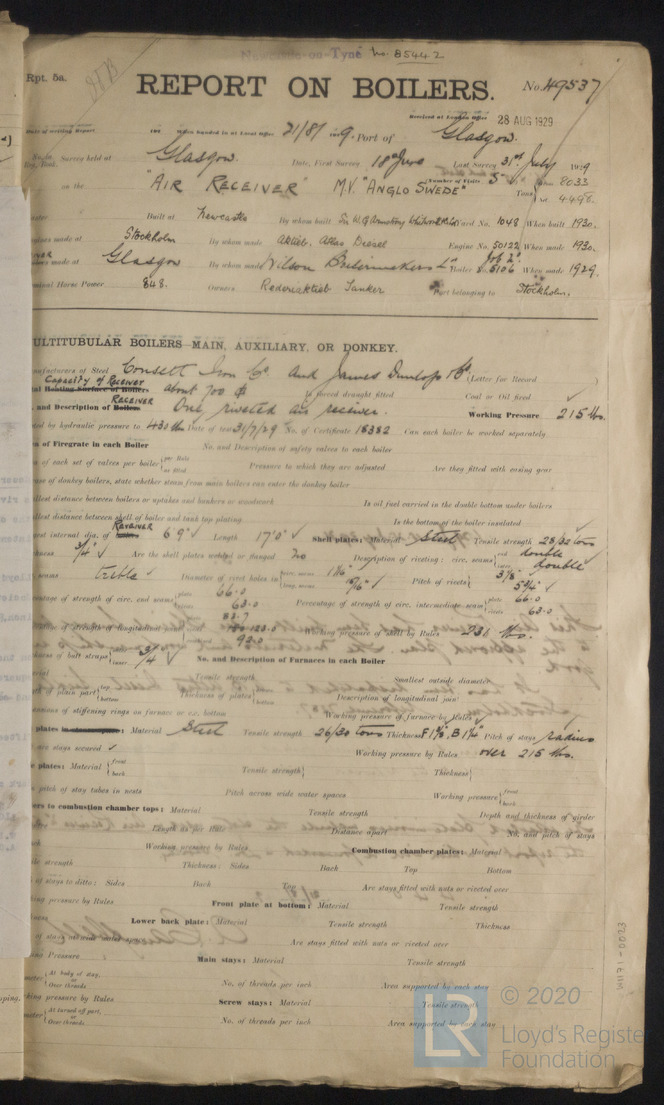 Newcastle-on-Tyne No. 85442
Rpt. 5a.
REPORT ON BOILERS.
No. 49537
Received at London Office 28 AUG 1929
Date of writing Report 192 When handed in at Local Office 21/8/ 1929. Port of Glasgow.
Survey held at Glasgow. Date, First Survey 18th June Last Survey 31st July 1929
on the "AIR RECEIVER" M.V. "ANGLO SWEDE" (Number of Visits 5) Gross 8033
Tons Net 4496.
Built at Newcastle By whom built Sir W G Armstrong Whitworth & Co Yard No. 1048 When built 1930.
Engines made at Stockholm By whom made Aktieb. Atlas Diesel Engine No. 50122 When made 1930.
made at Glasgow By whom made Wilson Boilermakers Ld Boiler No. 5106 When made 1929.
Nominal Horse Power 848. Owners Rederiaktieb Tanker Port belonging to Stockholm.
MULTITUBULAR BOILERS MAIN, AUXILIARY, OR DONKEY.
Manufacturers of Steel Consett Iron Co. and James Dunlop & Co (Letter for Record )
Capacity of Receiver
Total Heating Surface of Boilers about 700 Is forced draught fitted Coal or Oil fired
RECEIVER
No. and Description of Boilers One riveted air receiver. Working Pressure 215 lbs.
Tested by hydraulic pressure to 430 lbs Date of test 31/7/29 No. of Certificate 18382 Can each boiler be worked separately
Area of Firegrate in each Boiler No. and Description of safety valves to each boiler
Area of each set of valves per boiler { per Rule as fitted Pressure to which they are adjusted Are they fitted with easing gear
In case of donkey boilers, state whether steam from main boilers can enter the donkey boiler
Smallest distance between boilers or uptakes and bunkers or woodwork Is oil fuel carried in the double bottom under boilers
Smallest distance between shell of boiler and tank top plating Is the bottom of the boiler insulated
RECEIVER
Largest internal dia. of boilers 6' 9" Length 17' 0" Shell plates: Material Steel Tensile strength 28/32 tons
Thickness 3/4" Are the shell plates welded or flanged No Description of riveting: circ. seams { end double
inter. double
long. seams treble Diameter of rivet holes in { circ. seams 1 1/16" long. seams 15/16" Pitch of rivets { 3 1/8" 5 3/4"
Percentage of strength of circ. end seams { plate 66.0 rivets 63.0 Percentage of strength of circ. intermediate seam { plate 66.0 rivets 63.0
Percentage of strength of longitudinal { plate 83.7 93.0 Working pressure of shell by Rules 236 lbs.
Thickness of butt straps { outer 3/4 inner No. and Description of Furnaces in each Boiler
Tensile strength Smallest outside diameter
Length of plain part { top bottom Thickness of plates { Description of longitudinal joint
Dimensions of stiffening rings on furnace or c.c. bottom Working pressure of furnace by Rules
plates in steam space: Material Steel Tensile strength 26/30 tons Thickness F 1 1/8", B 1 1/4" Pitch of stays radius
How are stays secured Working pressure by Rules over 215 lbs.
plates: Material { front back Tensile strength { Thickness {
Mean pitch of stay tubes in nests Pitch across wide water spaces Working pressure { front back
Girders to combustion chamber tops: Material Tensile strength Depth and thickness of girder
Length as per Rule Distance apart No. and pitch of stays
Working pressure by Rules Combustion chamber plates: Material
Tensile strength Thickness: Sides Back Top Bottom
Pitch of stays to ditto: Sides Back Top Are stays fitted with nuts or riveted over
Working pressure by Rules Front plate at bottom: Material Tensile strength
Thickness Lower back plate: Material Tensile strength Thickness
Pitch of stays at wide water space Are stays fitted with nuts or riveted over
Working Pressure Main stays: Material Tensile strength
Diameter { At body of stay, or Over threads No. of threads per inch Area supported by each stay
Working pressure by Rules Screw stays: Material Tensile strength
Diameter { At turned off part, or Over threads No. of threads per inch Area supported by each stay
W1171-0023
LR © 2020
Lloyd's Register
Foundation